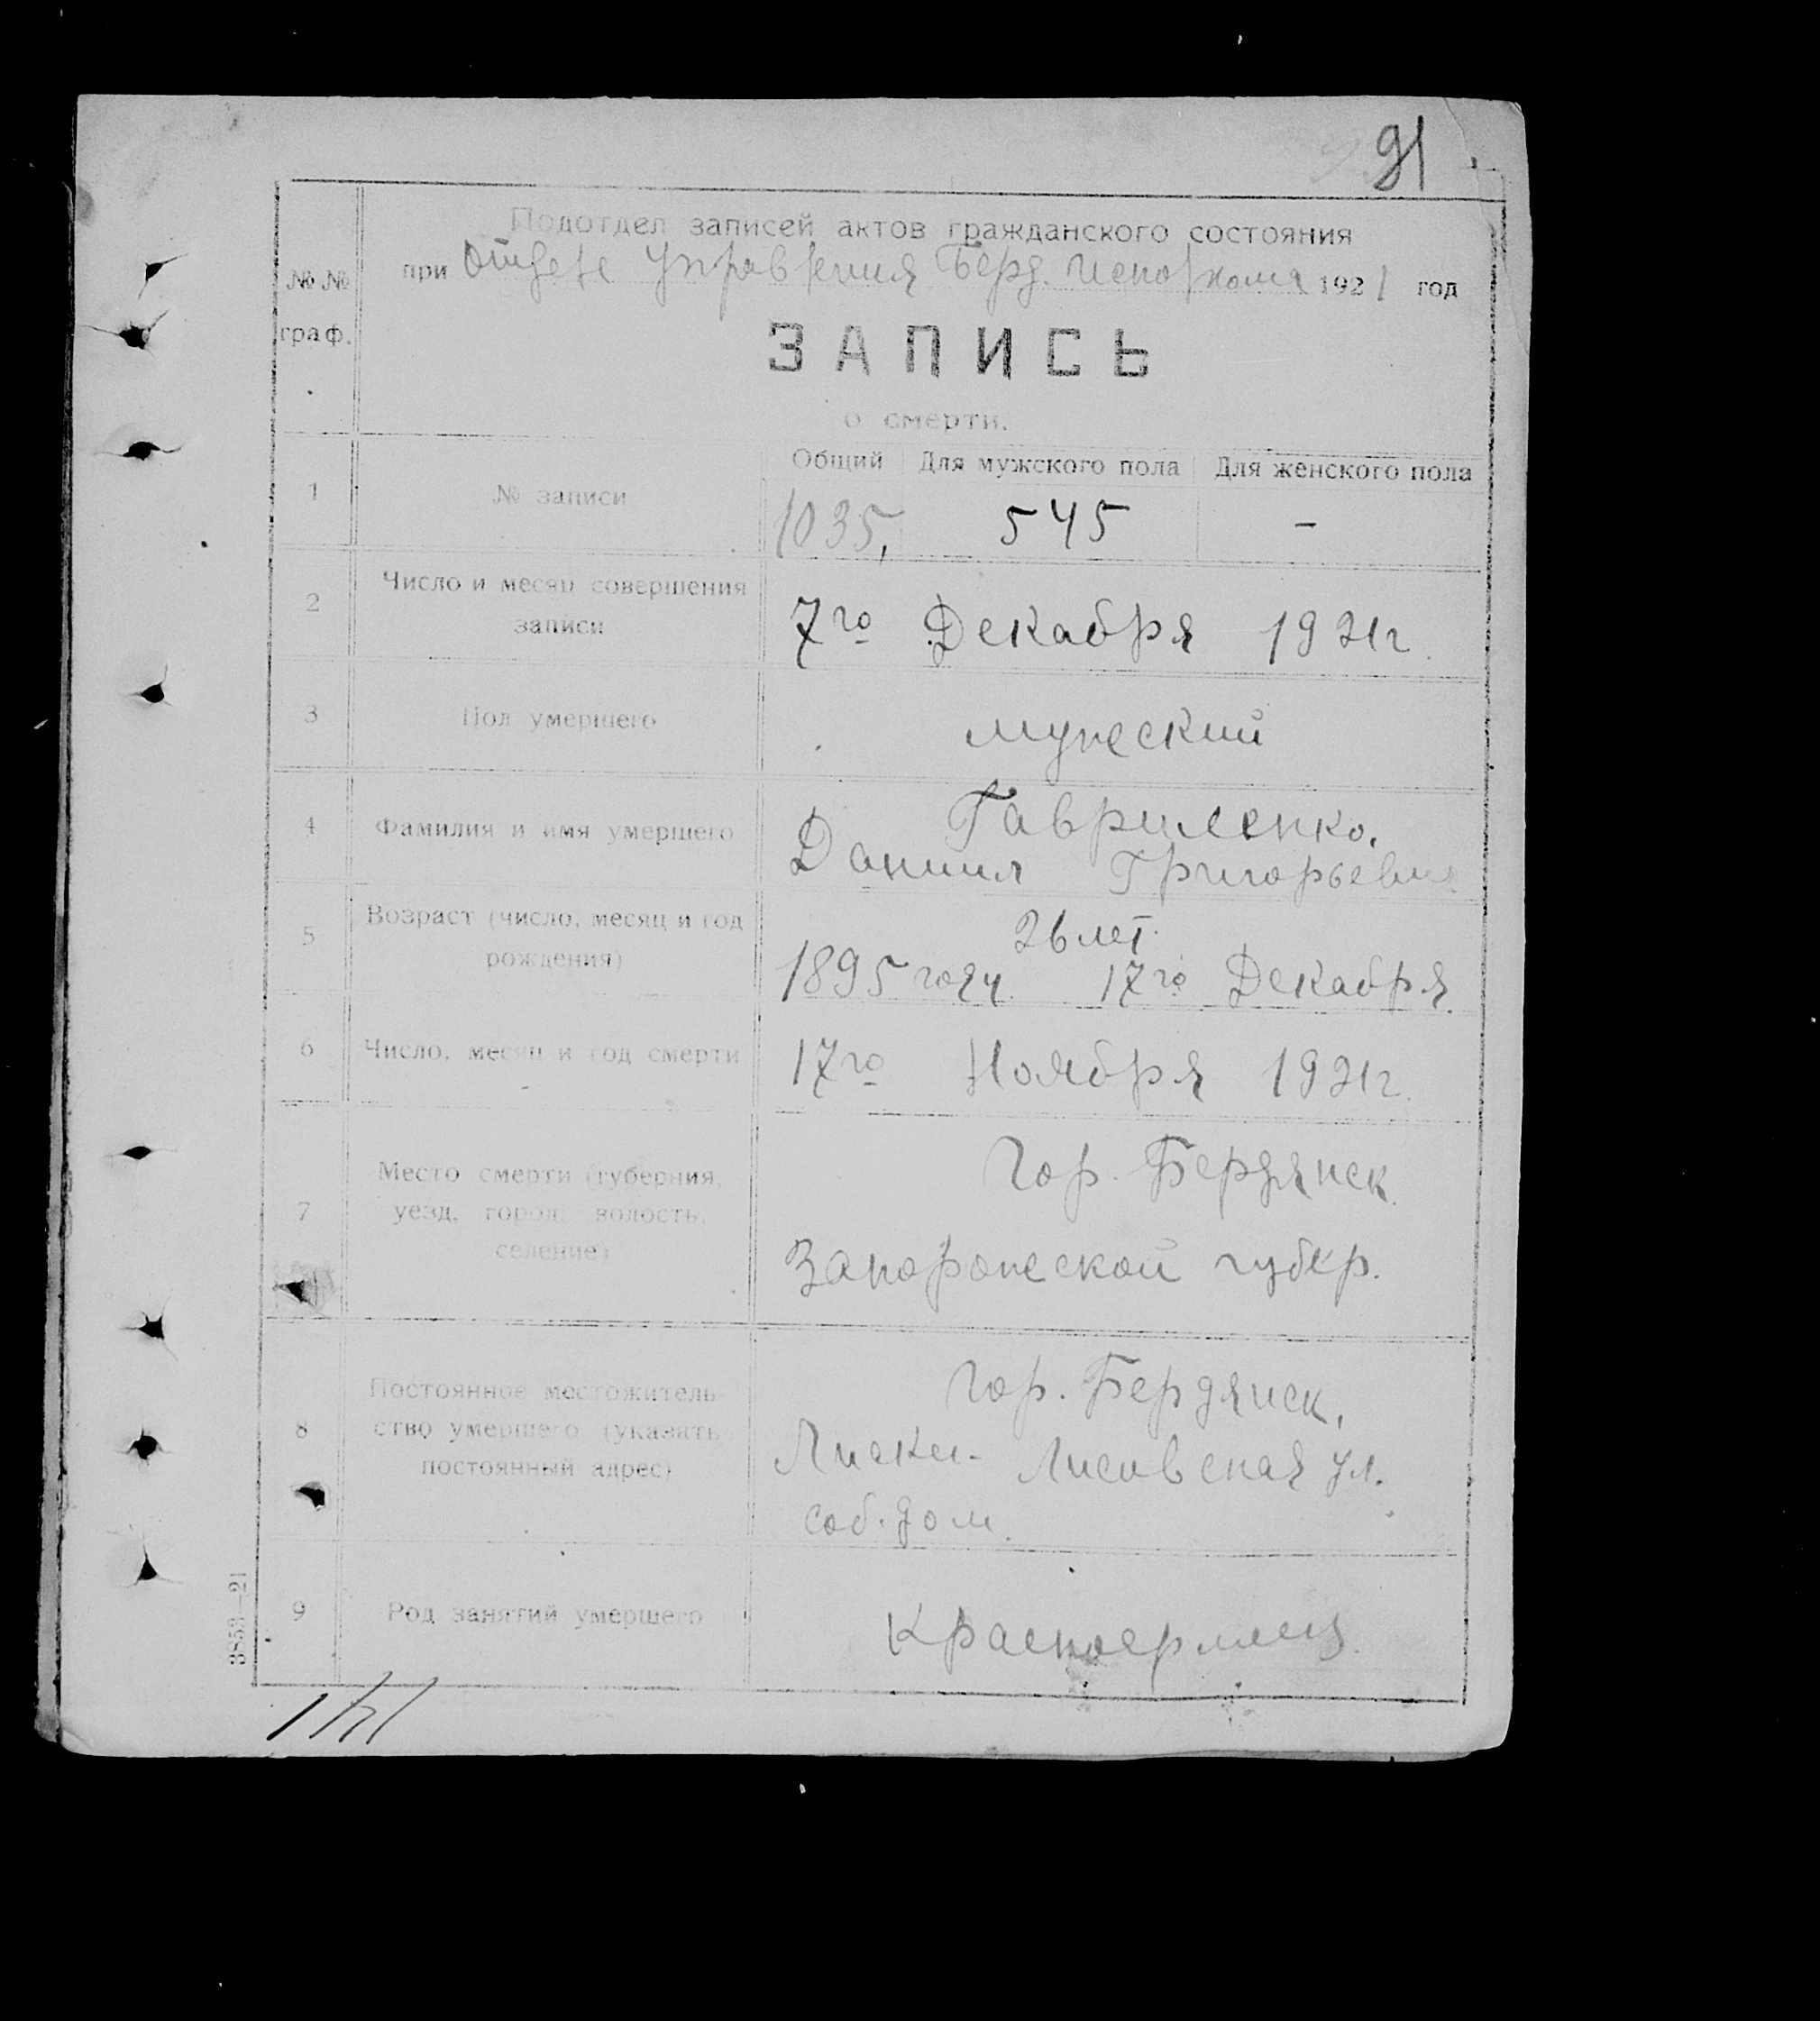 91
Подотдел записей актов гражданского состояния
при Отделе Управления Берд. Исполкома 1921 год
№№ граф.
ЗАПИСЬ
о смерти.
Общий Для мужского пола Для женского пола
1 № записи 1035, 545 –
2 Число и месяц совершения записи
7го Декабря 1921г.
3 Пол умершего мужеский
4 Фамилия и имя умершего
Гавриленко,
Даниил Григорьевич
5 Возраст (число, месяц и год рождения)
26 лет.
1895 году 17го Декабря.
6 Число, месяц и год смерти 17го Ноября 1921г.
7 Место смерти (губерния, уезд, город, волость, селение)
Гор. Бердянск.
Запорожеской губер.
8 Постоянное местожительство умершего (указать постоянный адрес)
Гор. Бердянск,
Лиски- Лисовская ул.
соб. дом.
9 Род занятий умершего Красноармеец.
3853—21